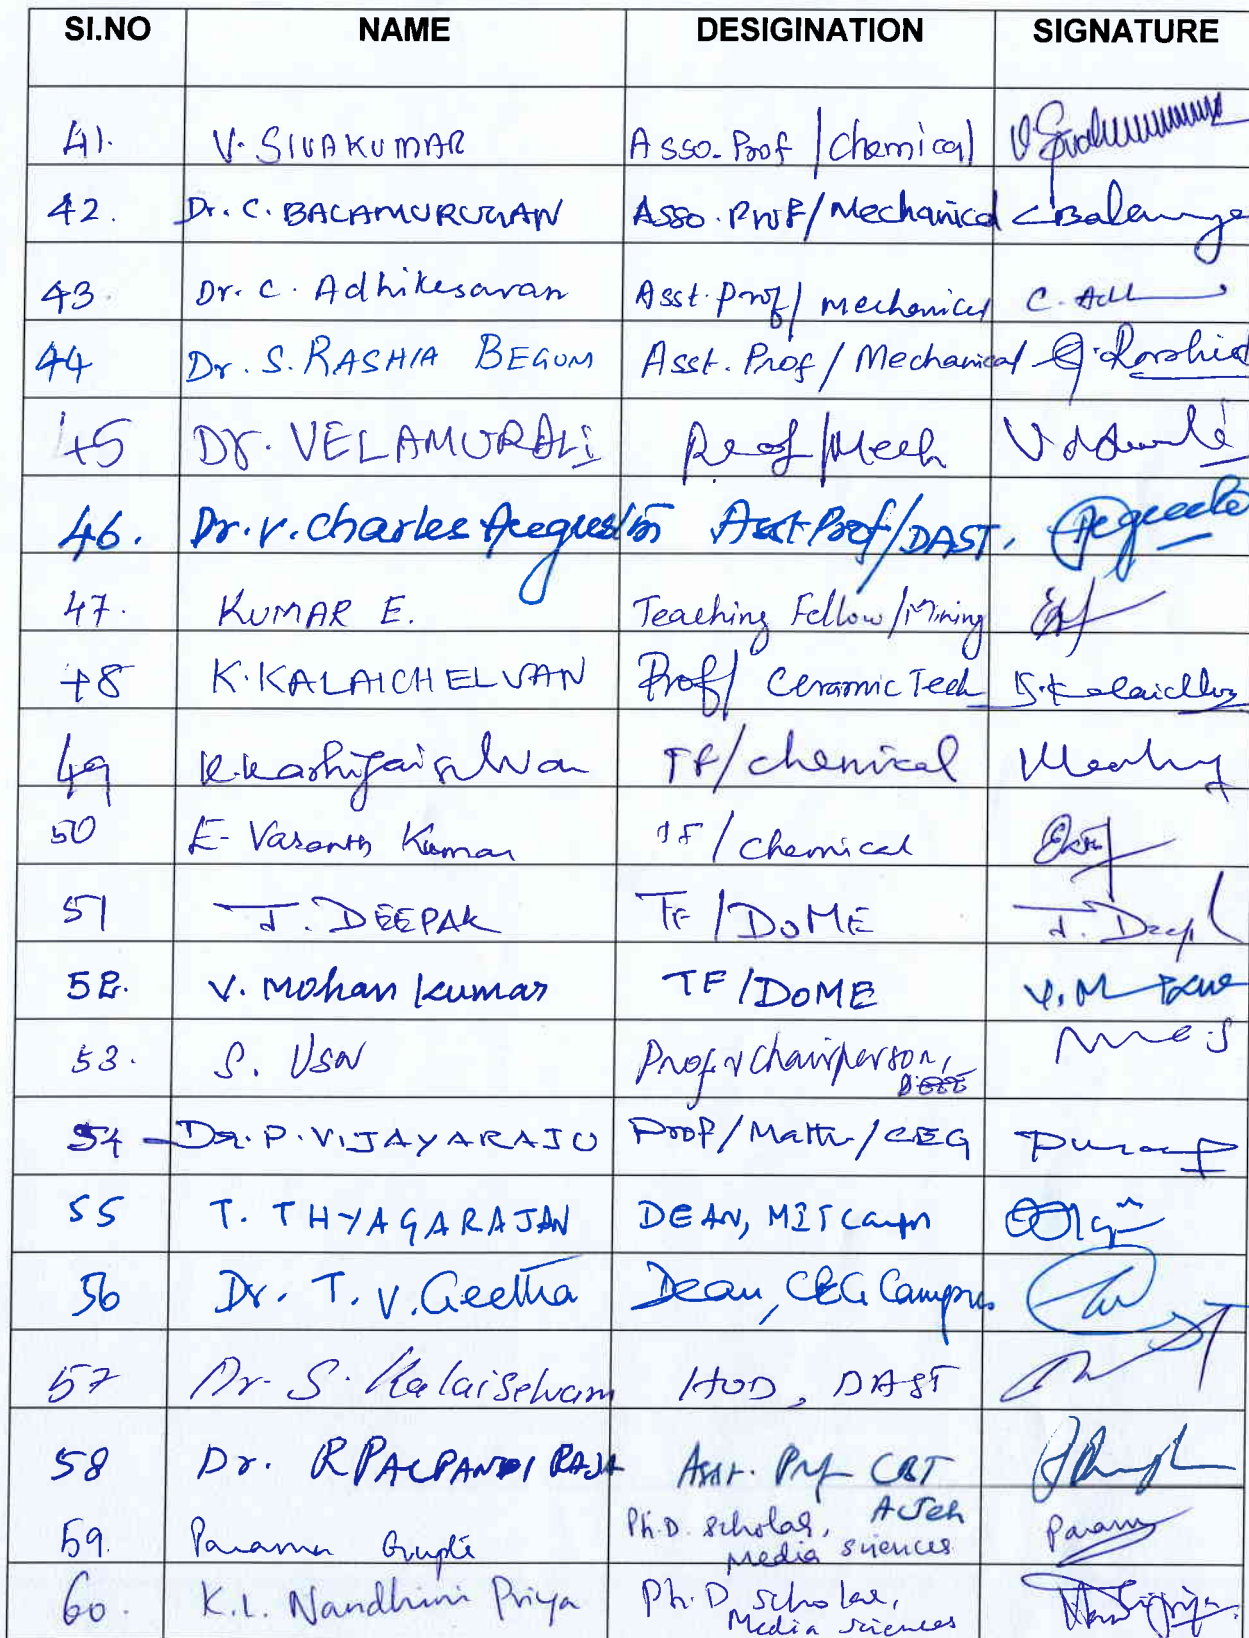 SI.NO NAME DESIGINATION SIGNATURE
41. V. SIVAKUMAR Asso. Prof / Chemical
42. Dr. C. BALAMURUGAN Asso. Prof / Mechanical
43. Dr. C. Adhikesavan Asst. Prof / Mechanical C. Adh
44 Dr. S. RASHIA BEGUM Asst. Prof / Mechanical
45 Dr. VELAMURALI Prof / Mech
46. Dr. V. Charles Augustin Asst Prof / DAST,
47. KUMAR E. Teaching Fellow / Mining
48 K. KALAICHELVAN Prof / Ceramic Tech
49 TF / chemical
50 E. Vasanth Kumar TF / Chemical
51 J. DEEPAK TF / DoME J. Deep
52. V. Mohan Kumar TF / DoME
53. S. Usa Prof & Chairperson,
54 Dr. P. VIJAYARAJU Prof / Math / CEG
55 T. THYAGARAJAN DEAN, MIT Campus
56 Dr. T. V. Geetha Dean, CEG Campus
57 Dr. S. Kalaiselvam HOD, DAST
58 Dr. R PALPANDI RAJA Asst. Prof CBT
ACTech
59. Parama Gupta Ph.D. scholar, Param
Media sciences
60. K.L. Nandhini Priya Ph.D scholar,
Media sciences